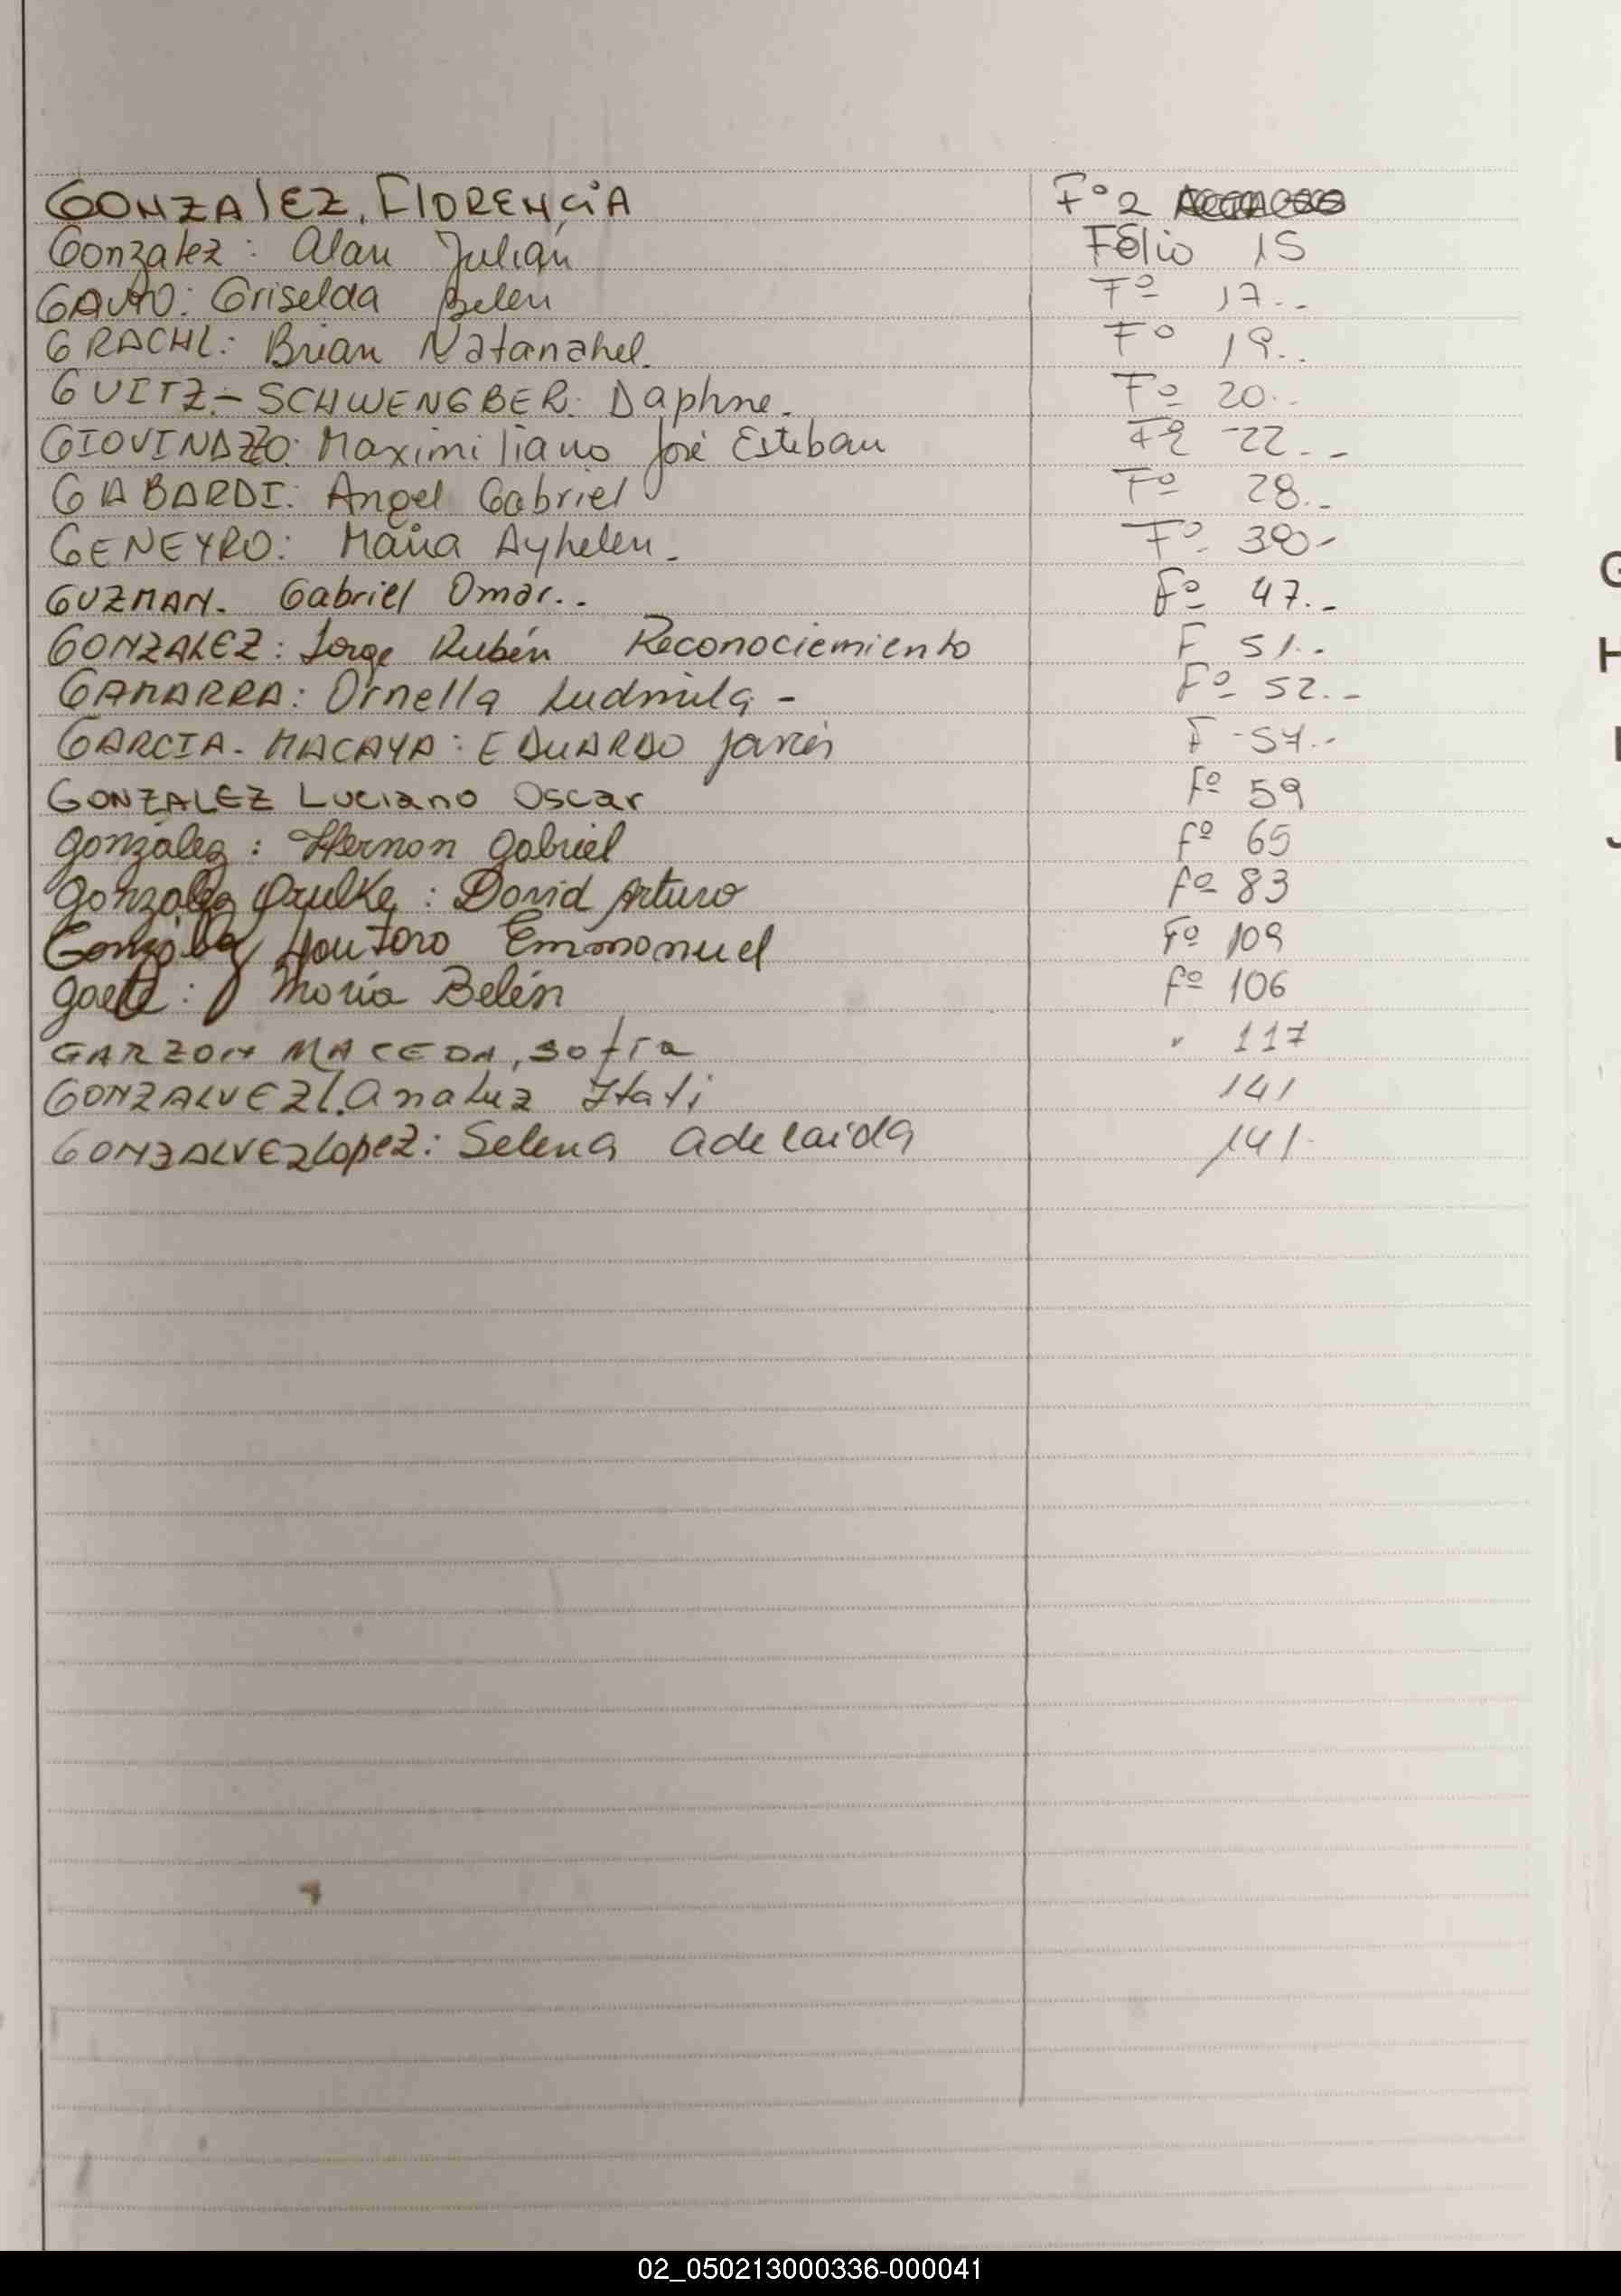 GONZAlEZ, FlORENCiA F° 2
Gonzalez: Alan Julián Fólio 15
GAUTO: Griselda Belen Fº 17..
GRACHL: Brian Natanahel. Fº 19..
GUITZ.- SCHWENGBER: Daphne. Fº 20..
GIOVINAZZO: Maximiliano José Esteban Fº 22.-
GABARDI: Angel Gabriel Fº 28.-
GENEYRO: María Ayhelen.- Fº
GUZMAN. Gabriel Omar.. Fº 47.-
GONZALEZ: Jorge Rubén Reconociemiento F 51..
GAMARRA: Ornella Ludmila - Fº 52.-
GARCIA. MACAYA: EDUARDO javier F 54..
GONZALEZ Luciano Oscar Fº 59
González: Hernan Gabriel fº 65
González : David Arturo fº 83
Lautaro Emmanuel Fº 109
Gaete: María Belén fº 106
GARZON MACEDA, sofía " 117
GONZALVEZ L. Analuz Itati 141
GONZALVEZ Lopez: Selena Adelaida 141.
G
H
I
J
02_050213000336-000041